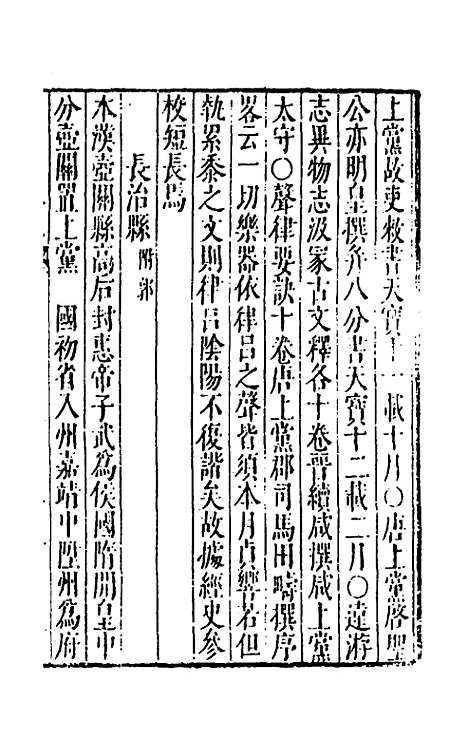 上黨故吏敕書天寶十一載十月○唐上黨啓聖
公亦明皇撰并八分書天寶十二載二月○遠游
志異物志汲冢古文釋各十卷晉續咸撰咸上黨
太守○聲律要訣十卷唐上黨郡司馬田疇撰序
畧云一切樂器依律呂之聲皆須本月真響若但
執累黍之文則律呂陰陽不復諧矣故據經史參
校短長焉
長治縣附郭
本漢壺關縣高后封惠帝子武爲侯國隋開皇中
分壺關置上黨　國初省入州嘉靖中陞州爲府